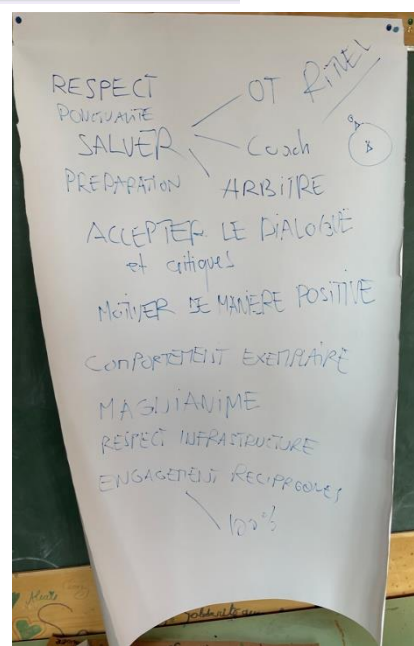 RESPECT
OT RITUEL
PONCTUALITÉ
SALUER
Coach
PREPARATION
ARBITRE
B
ACCEPTER LE DIALOGUE
et critiques
MOTIVER DE MANIERE POSITIVE
COMPORTEMENT EXEMPLAIRE
MAGNIANIME
RESPECT INFRASTRUCTURE
ENGAGEMENT RECIPROQUES
100%